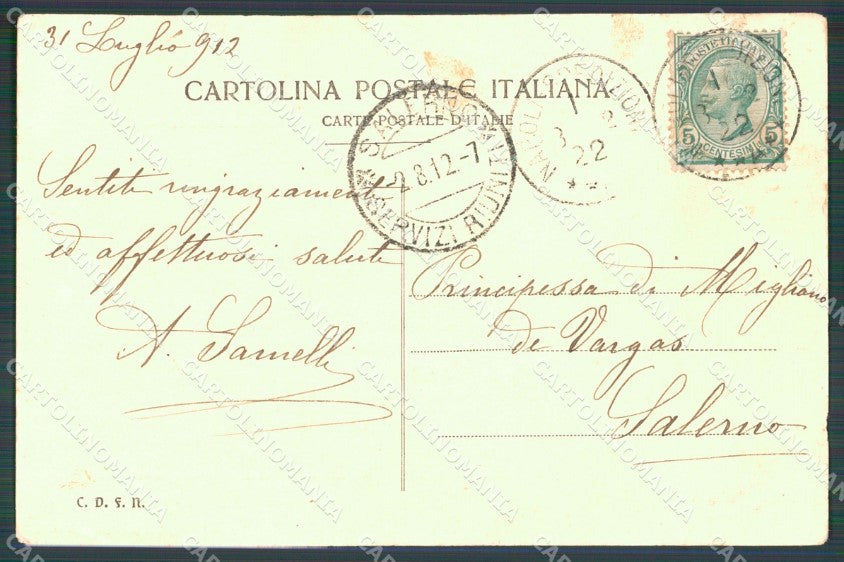 31 Luglio 912
CARTOLINA POSTALE ITALIANA
CARTE POSTALE D'ITALIE
SALERNO
2.8.12-7
SERVIZI RIUNITI
NAPOLI
1
8
22
POSTE ITALIANE
5 5
CENTESIMI
1
8
22
Sentiti ringraziamenti
ed affettuosi saluti
A. Samelli
Principessa di Migliano
de Vargas
Salerno
C. D. F. N.
CARTOLINOMANIA